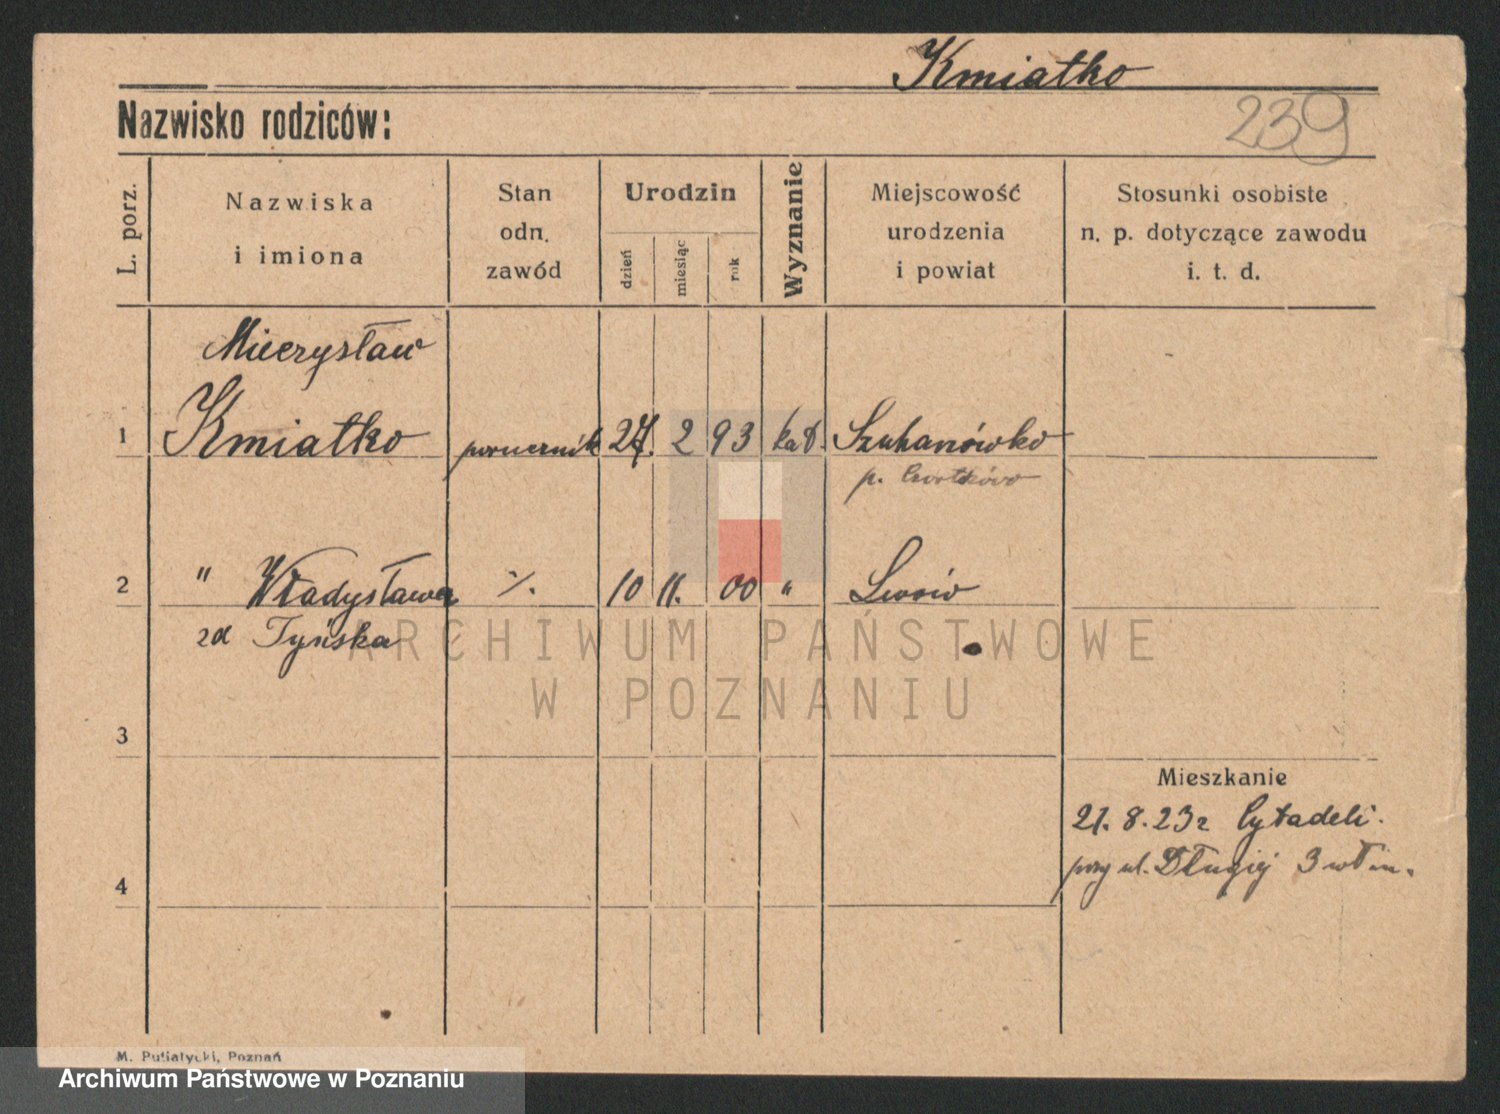 Kmiatko
Nazwisko rodziców:
239
L. porz.
Nazwiska
i imiona
Stan
odn.
zawód
Urodzin
dzień
miesiąc
rok
Wyznanie
Miejscowość
urodzenia
i powiat
Stosunki osobiste
n. p. dotyczące zawodu
i. t. d.
Mieczysław
1 Kmiatko porucznik 27. 2 93 kat. Szuhanówko
p. Czortków
2 " Władysława ./. 10 11. 00 " Lwów
zd Tyńska
ARCHIWUM PAŃSTWOWE
W POZNANIU
3
Mieszkanie
21. 8. 23 r Cytadeli.
przy ul. Długiej 3
4
M. Putiatycki, Poznań
Archiwum Państwowe w Poznaniu